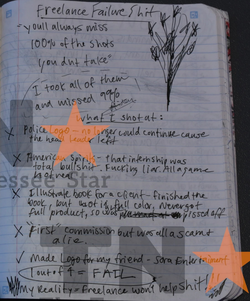 Freelance Failure Shit
- you'll always miss
100% of the shots
you dnt take"
I took all of them
and missed
what I shot at:
X Police Logo - no longer could continue cause
the head left
X American Spirit - That internship was
total bullshit. Fucking liar. All a game
X Illustrate book for a client - finished the
book, but not in full color. Never got
full product, so was pissed off
X "First" commission but was all a scam &
a lie.
✓ Made Logo for my friend -
1 out of 4 = FAIL
My Reality - Freelance won't help shit!!
Star